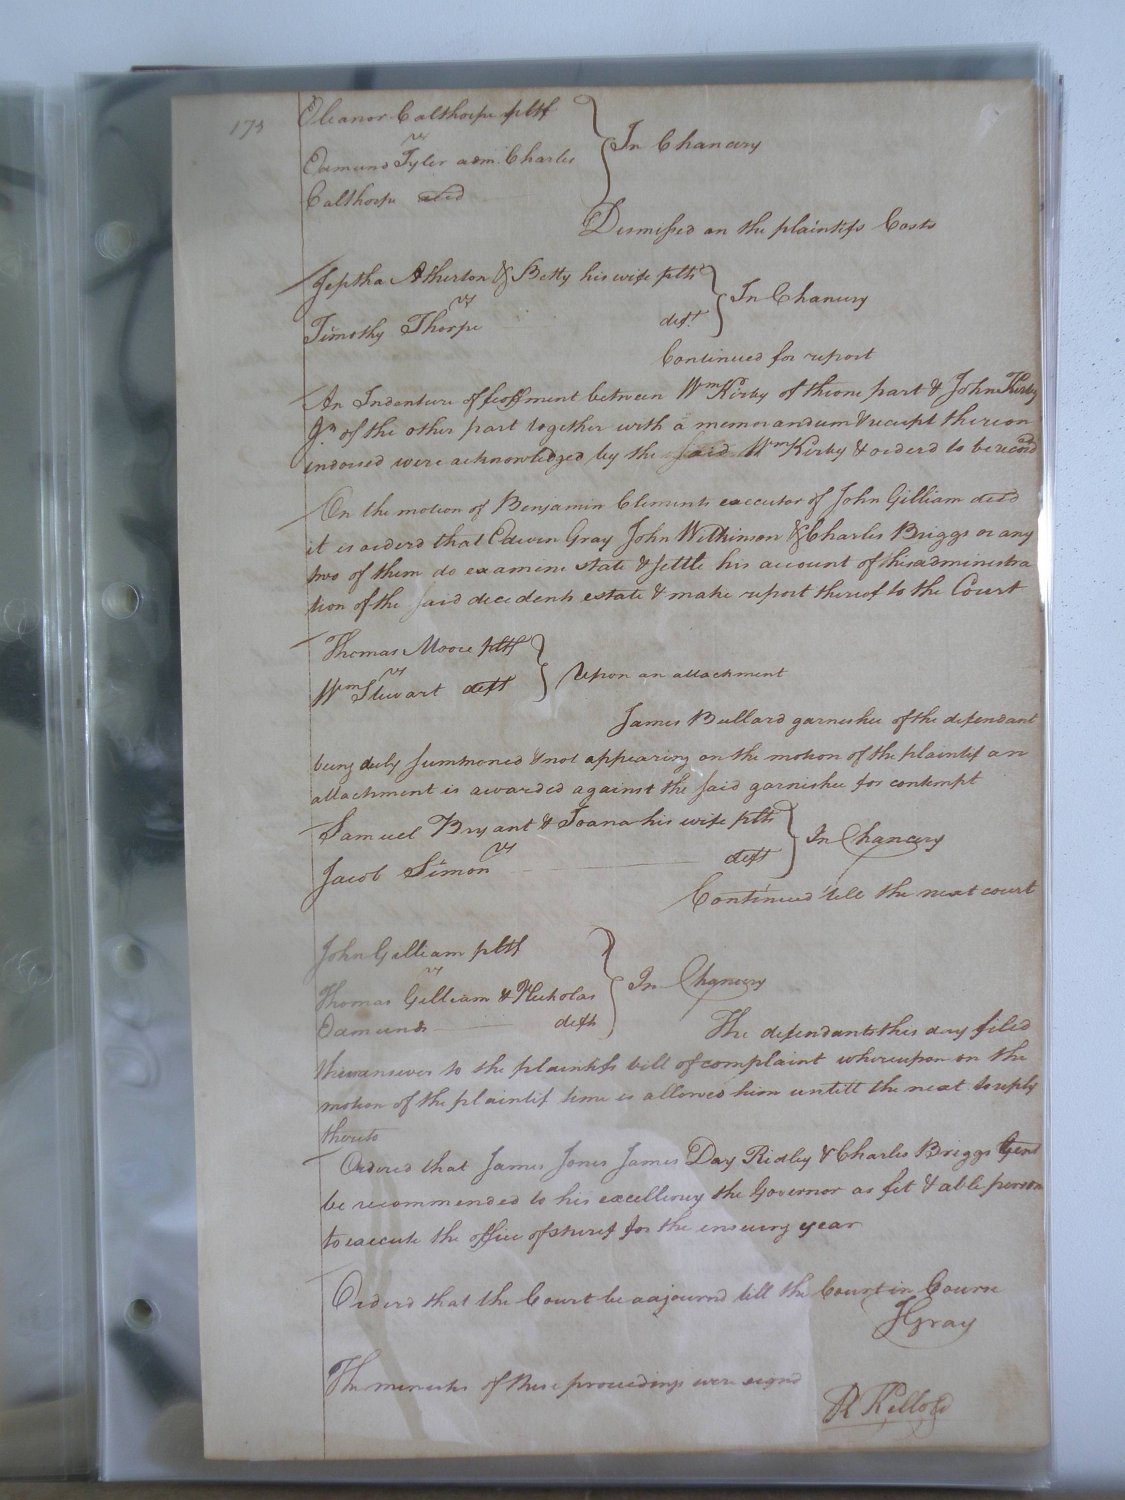 175
Eleanor Calthorpe pltf
vs
In Chancery
Edmund Tyler adm. Charles
Calthorpe decd
Dismissed on the plaintifs Costs
Jeptha Atherton & Betty his wife plts
vs
In Chancery
Timothy Thorpe deft
Continued for report
An Indenture of feoffment between Wm Kirby of the one part & John Kirby
Jr. of the other part together with a memorandum & receipt thereon
indorsed were acknowledged by the said Wm Kirby & orderd to be recorded
On the motion of Benjamin Clements executor of John Gilliam decd
it is orderd that Edwin Gray John Wilkinson & Charles Briggs or any
two of them do examine state & settle his account of his administra
tion of the said decedents estate & make report thereof to the Court
Thomas Moore pltf
vs
Upon an attachment
Wm Stewart deft
James Bullard garnishee of the defendant
being duly summoned & not appearing on the motion of the plaintif an
attachment is awarded against the said garnishee for contempt
Samuel Bryant & Joana his wife plts
vs
In Chancery
Jacob Simon deft
Continued till the next court
John Gilliam pltf
vs
In Chancery
Thomas Gilliam & Nicholas
Edmunds defts
The defendants this day filed
their answer to the plaintifs bill of complaint whereupon on the
motion of the plaintif time is allowed him untill the next to reply
thereto
Ordered that James Jones James Day Ridley & Charles Briggs Gent
be recommended to his excellency the Governor as fit & able persons
to execute the office of sherif for the ensuing year
Orderd that the Court be adjournd till the Court in Course
JGray
The minutes of these proceedings were signd
R Kello